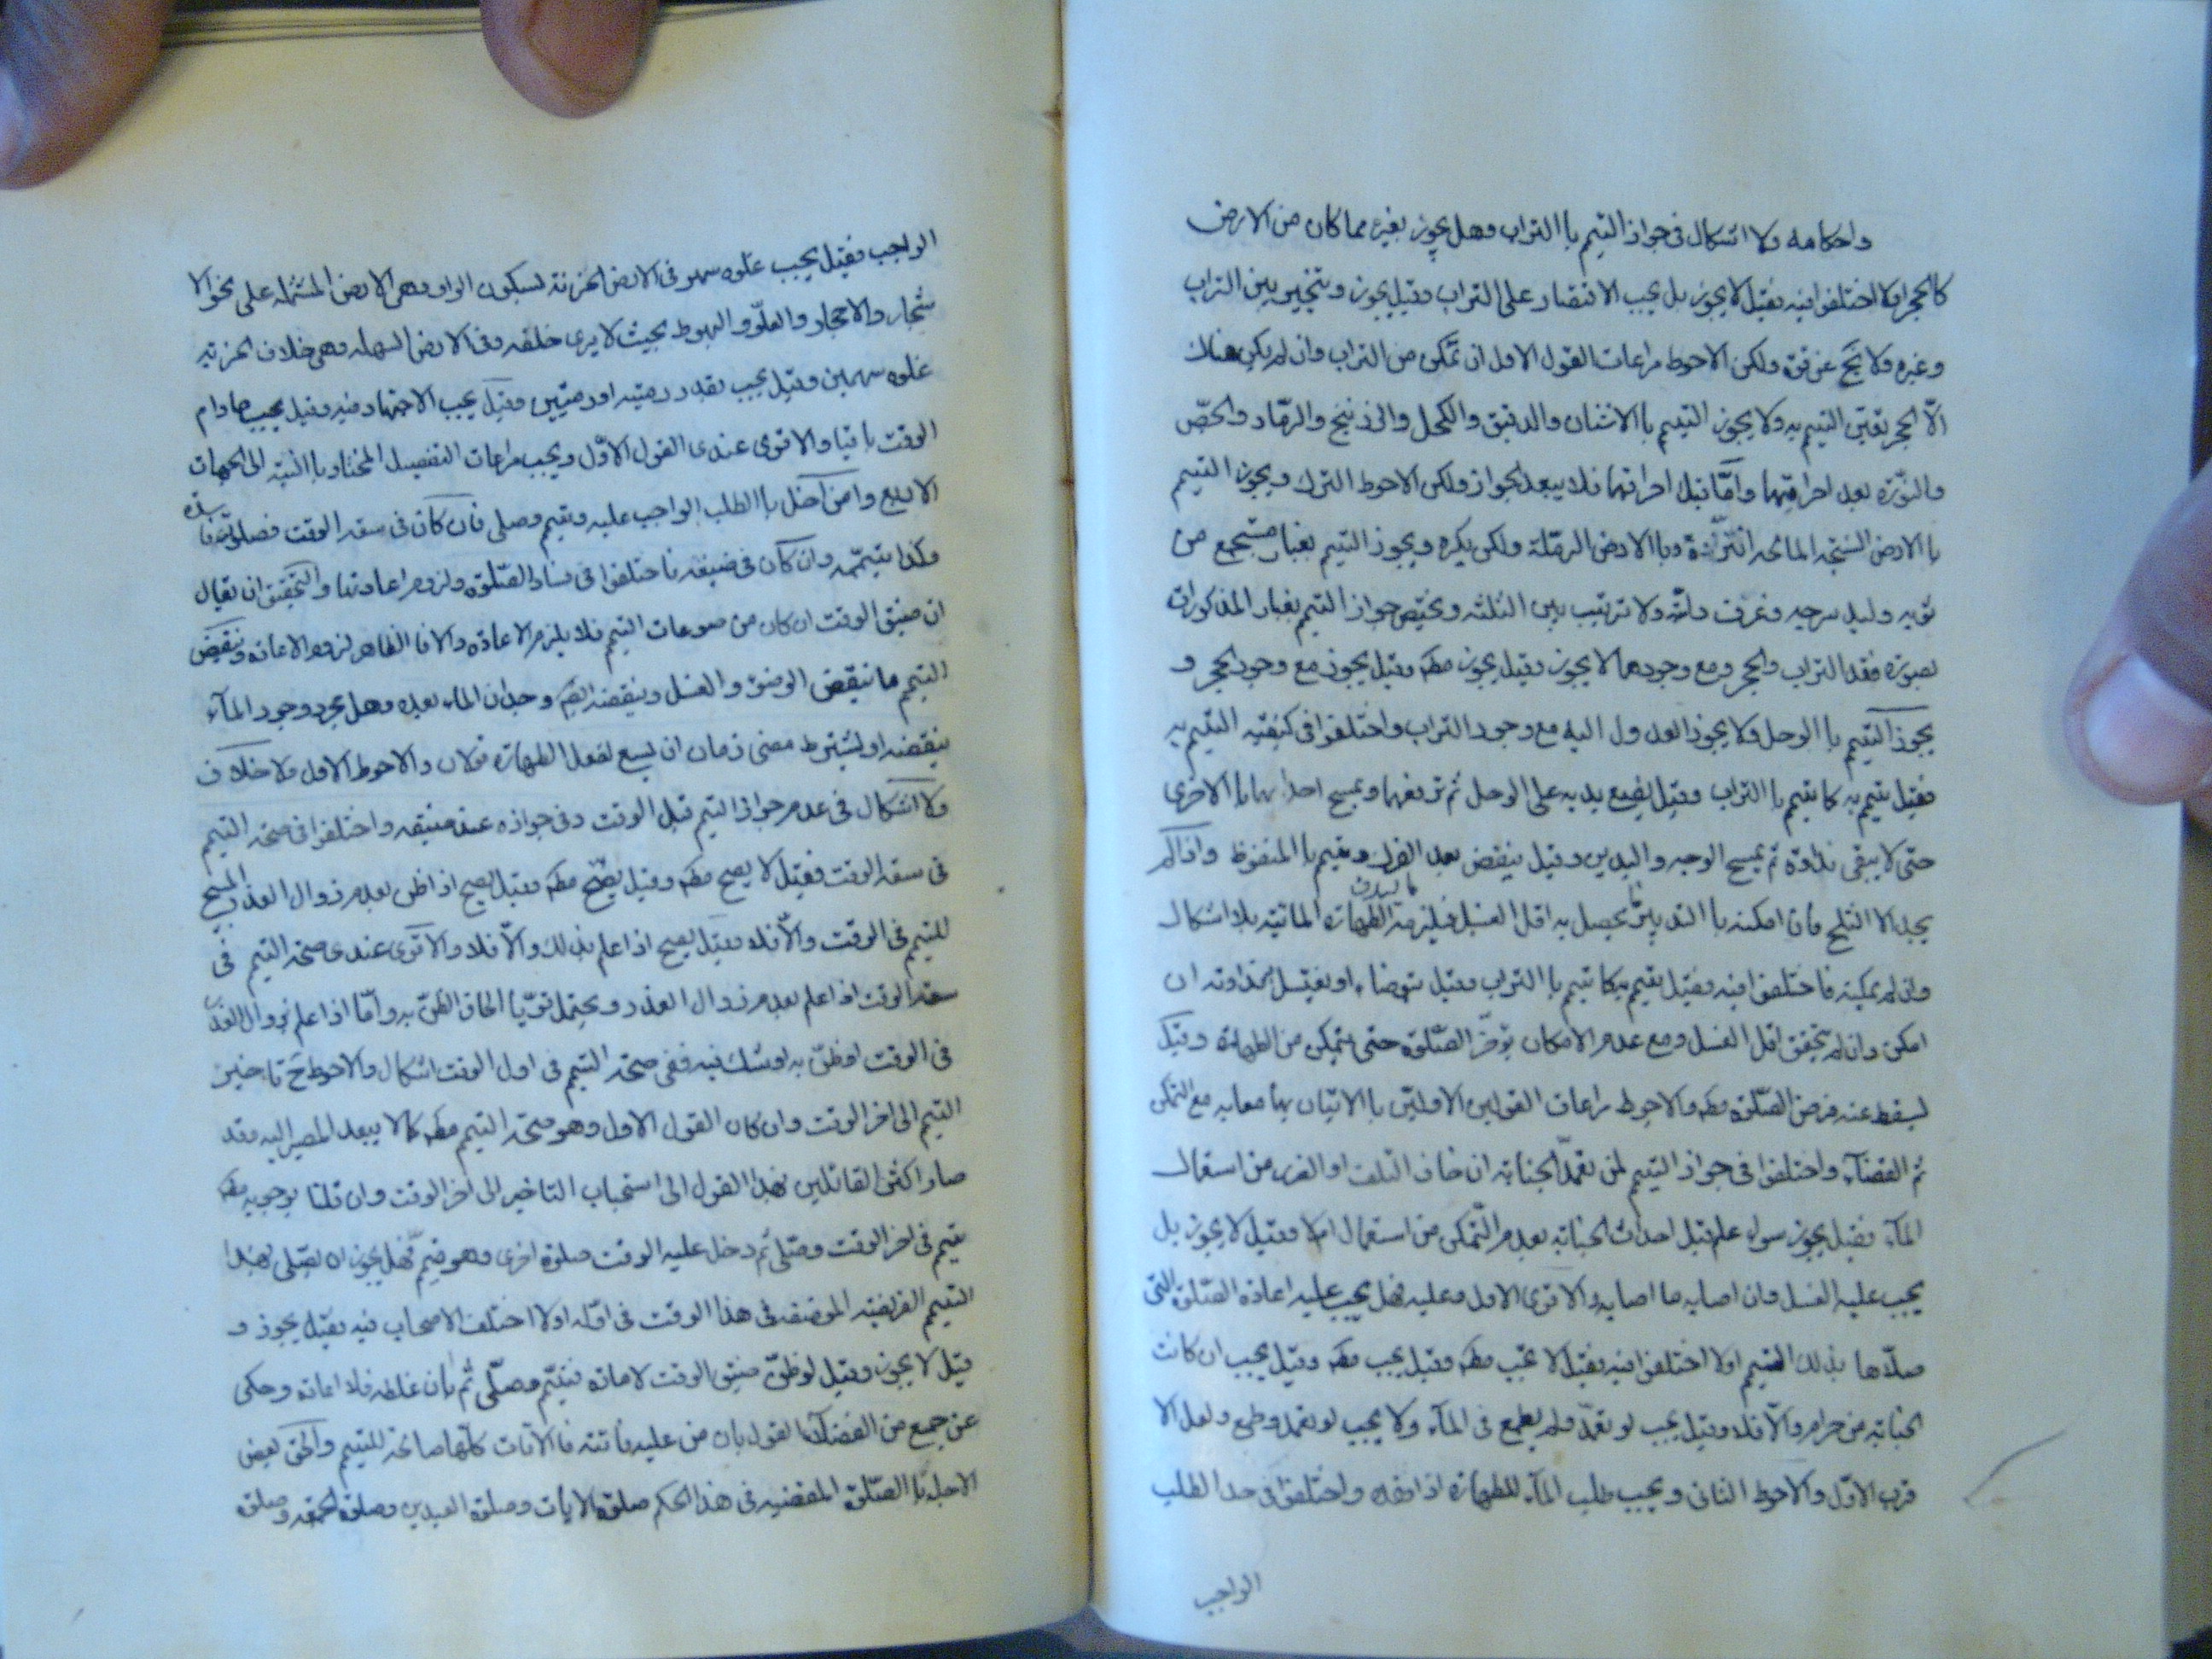 واحكامه ولا اشكال فى جواز التيمم باالتراب وهل يجوز بغيره مما كان من الارض
كالحجر اولا اختلفوا فيه فقيل لا يجوز بل يجب الاقتصار على التراب وقيل يجوز ويتخير بين التراب
وغيره ولا يخ عن قوة ولكن الاحوط مراعات القول الاول ان تمكن من التراب وان لم يكن هناك
الّا الحجر تعيّن التيمم به ولا يجوز التيمم باالاشنان والدقيق والكحل والزرنيخ والرمّاد والجصّ
والنورة بعد احراقهما وامّا قبل احراقهما فلا يبعد الجواز ولكن الاحوط الترك ويجوز التيمم
باالارض السبخه المالحه وباالارض الرملة ولكن يكره ويجوز التيمم بغبار مستجمع من
ثوبه ولبد سرجه وعرف دابّته ولا ترتيب بين الثلثه ويختص جواز التيمم بغبار المذكورات
بصورة فقد التراب والحجر ومع وجودهما لا يجوز وقيل يجوز مطه وقيل يجوز مع وجود الحجر و
يجوز التيمم باالوحل ولا يجوز العدول اليه مع وجود التراب واختلفوا فى كيفيّه التيمم به
فقيل يتيمم به كما يتيمم باالتراب وقيل يضع يديه على الوحل ثم ترفعها ويمسح احدايهما باالاخرى
حتى لا يبقى نداوة ثم يمسح الوجه واليدين وقيل ينقض بعد الفرك ويتيمم باالمنفوظ واذا لم
يجد الا الثلج فان امكنه باالتدبين يحصل به اقل الغسل فيلزمه الطهارة المائيّه بلا اشكال
وان لم يمكنه فاختلفوا فيه فقيل يتيمم به كما يتيمم باالتراب وقيل يتوضاء او يغتسل بنداوته ان
امكن وان لم يتحقق اقل الغسل ومع عدم الامكان يوخّر الصّلوة حتى يتمكن من الطهارة وقيل
يسقط عنه فرض الصّلوة مطه والاحوط مراعات القولين الاوليّن باالاتيان بهما معا به مع التمكن
ثم القضآء واختلفوا فى جواز التيمم لمن تعمّد الجنابه ان خاف التلف او الضرر من استعمال
المآء فقيل يجوز سواء علم قبل احداث الجنابه بعدم التّمكن من استعمال ام لا وقيل لا يجوز بل
يجب عليه الغسل وان اصابه ما اصابه والاقوى الاول وعليه فهل يجب عليه اعادة الصّلوة التى
صلّاها بذلك التيمم اولا اختلفوا فيه فقيل لا يجب مطه وقيل يجب مطه وقيل يجب ان كانت
الجنابه من حرام والّا فلا وقيل يجب لو تعمّد ولم يطمع فى المآء ولا يجب لو تعمد وطمع ولعل الا
قرب الاوّل والاحوط الثانى ويجب طلب المآء للطهارة اذا فقده واختلفوا فى حد الطلب
الواجب
الواجب فقيل يجب غلوه سهم فى الارض الحزنة بسكون الواو وهى الارض المشتمله على نحو الا
شجار والاحجار والعلوّ والهبوط بحيث لا يرى خلفه وفى الارض السهله وهى خلاف الحزنه
غلوه سهمين وقيل يجب بقدر رميته او رميتين وقيل يجب الاجتهاد فيه وقيل يجب مادام
الوقت باقيا والاقوى عندى القول الاوّل ويجب مراعات التفصيل المختار باالنسبة الى الجهات
الاربع وامن اخل باالطلب الواجب عليه وتيمم وصلى فان كان فى سعه الوقت فصلوته فاسدة
وكذا تيمّمه وان كان فى ضيقه فاختلفوا فى فساد الصّلوة ولزوم اعادتها والتحقيق ان يقال
ان ضيق الوقت ان كان من مسوغات التيمم فلا يلزم الاعادة والا فا الظاهر لزوم الاعادة وينقض
التيمم ما ينقض الوضوء والغسل وينقضه ايضا وجدان الماء بعده وهل مجرد وجود المآء
ينقضه او يشترط مضى زمان ان يسع لفعل الطهارة قولان والاحوط الاول ولا خلاف
ولا اشكال فى عدم جواز التيمم قبل الوقت وفى جوازه عند ضيقه واختلفوا فى صحّه التيمم
فى سعه الوقت فقيل لا يصح مطه وقيل يصّح مطه وقيل يصح اذا ظن بعدم زوال العذر المبيح
للتيمم فى الوقت والّا فلا وقيل يصح اذا علم بذلك والّا فلا والاقوى عندى صحّه التيمم فى
سعه الوقت اذا علم بعدم زوال العذر ويحتمل قويّا الحاق الظنّ به وامّا اذا علم زوال العذر
فى الوقت او ظنّ به او شك فيه ففى صحّة التيمم فى اول الوقت اشكال والاحوط ح تاخير
التيمم الى اخر الوقت وان كان القول الاول وهو صحّه التيمم مطه كما لا يبعد المصير اليه وقد
صار اكثر القائلين بهذا القول الى استحباب التاخير الى اخر الوقت وان قلنا بوجوبه مطه
تيمم فى اخر الوقت وصّلى ثم دخل عليه الوقت صلوة اخرى وهو متيمم فهل يجوز ان يصّلى بهذا
التيمم الفريضه الموضفه فى هذا الوقت فى اوّله اولا اختلف الاصحاب فيه فقيل يجوز و
قيل لا يجوز وقيل لو ظنّ ضيق الوقت لامارة فتيمّم وصلّى ثم بان غلطه فلا اعادة وحكى
عن جمع من الفضلآء القول بان من عليه فائته فا الاوقات كلّها صالحة للتيمم والحق بعض
الاجلّه باالصّلوة المقضيه فى هذا الحكم صلوة الايات وصلوة العيدين وصلوة الجمعه وصلوة